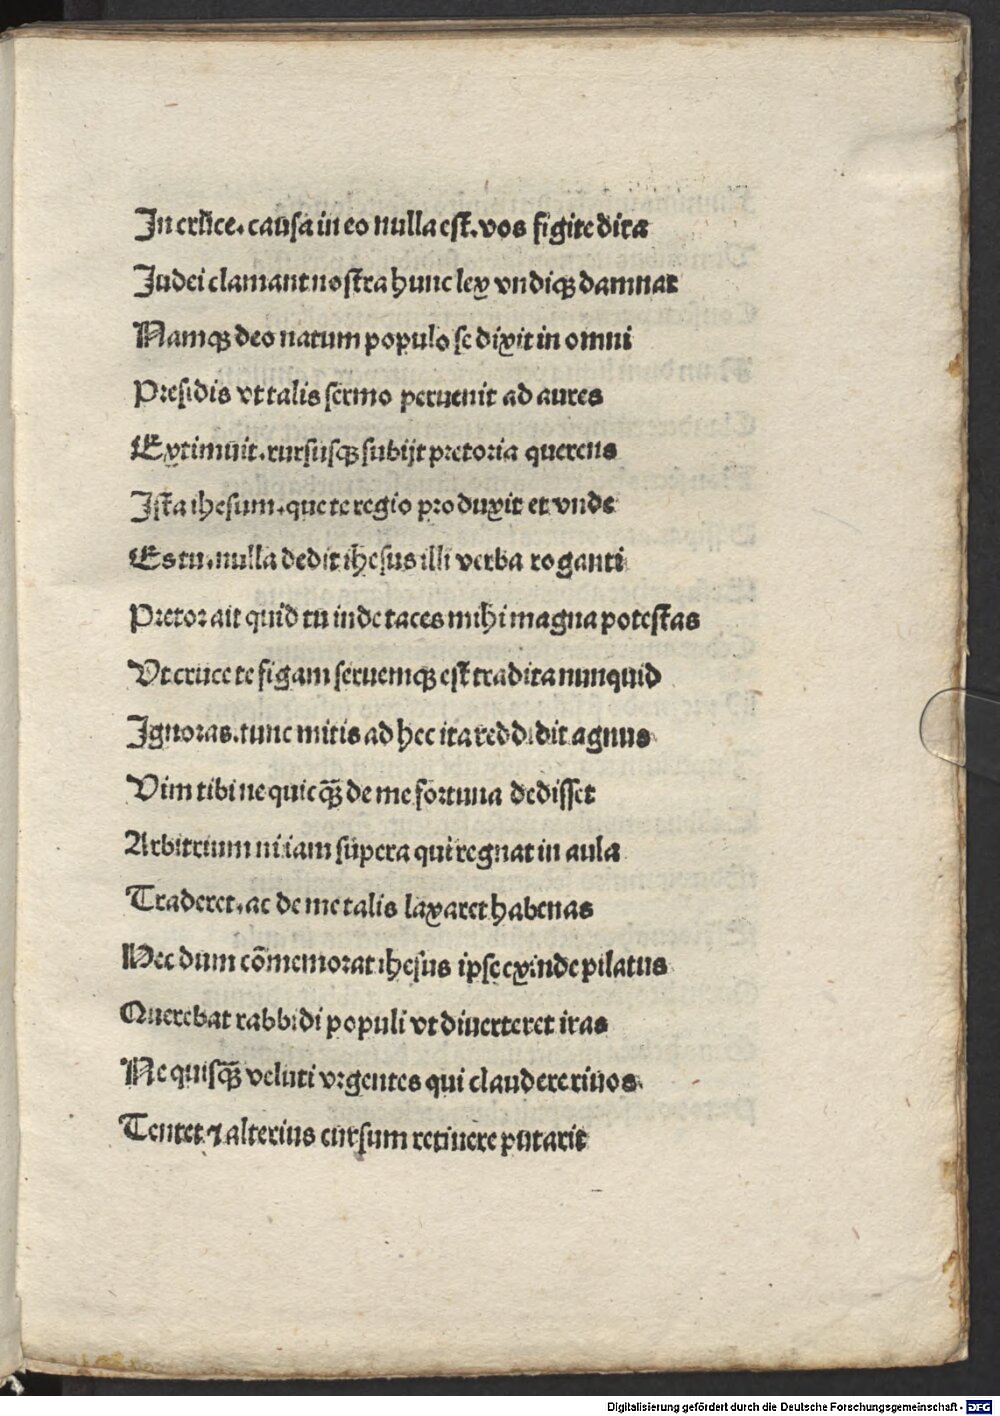 In cruce. causa in eo nulla est. vos figite dira
Iudei clamant nostra hunc lex vndiqꝫ damnat
Namqꝫ deo natum populo se dixit in omni
Presidis vt talis sermo peruenit ad aures
Extimuit. rursusqꝫ subijt pretoria querens
Ista ihesum. que te regio produxit et vnde
Es tu. nulla dedit ihesus illi verba roganti
Pretor ait quid tu inde taces mihi magna potestas
Vt cruce te figam seruemqꝫ est tradita nunquid
Ignoras. tunc mitis ad hec ita reddidit agnus
Vim tibi ne quicq̄ꝫ de me fortuna dedisset
Arbitrium ni iam supera qui regnat in aula
Traderet. ac de me talis laxaret habenas
Nec dum cōmemorat ihesus ipse exinde pilatus
Querebat rabbidi populi vt diuerteret iras
Ne quisq̄ꝫ veluti vrgentes qui claudere riuos
Tentet ⁊ alterius cursum retinere putarit
Digitalisierung gefördert durch die Deutsche Forschungsgemeinschaft - DFG